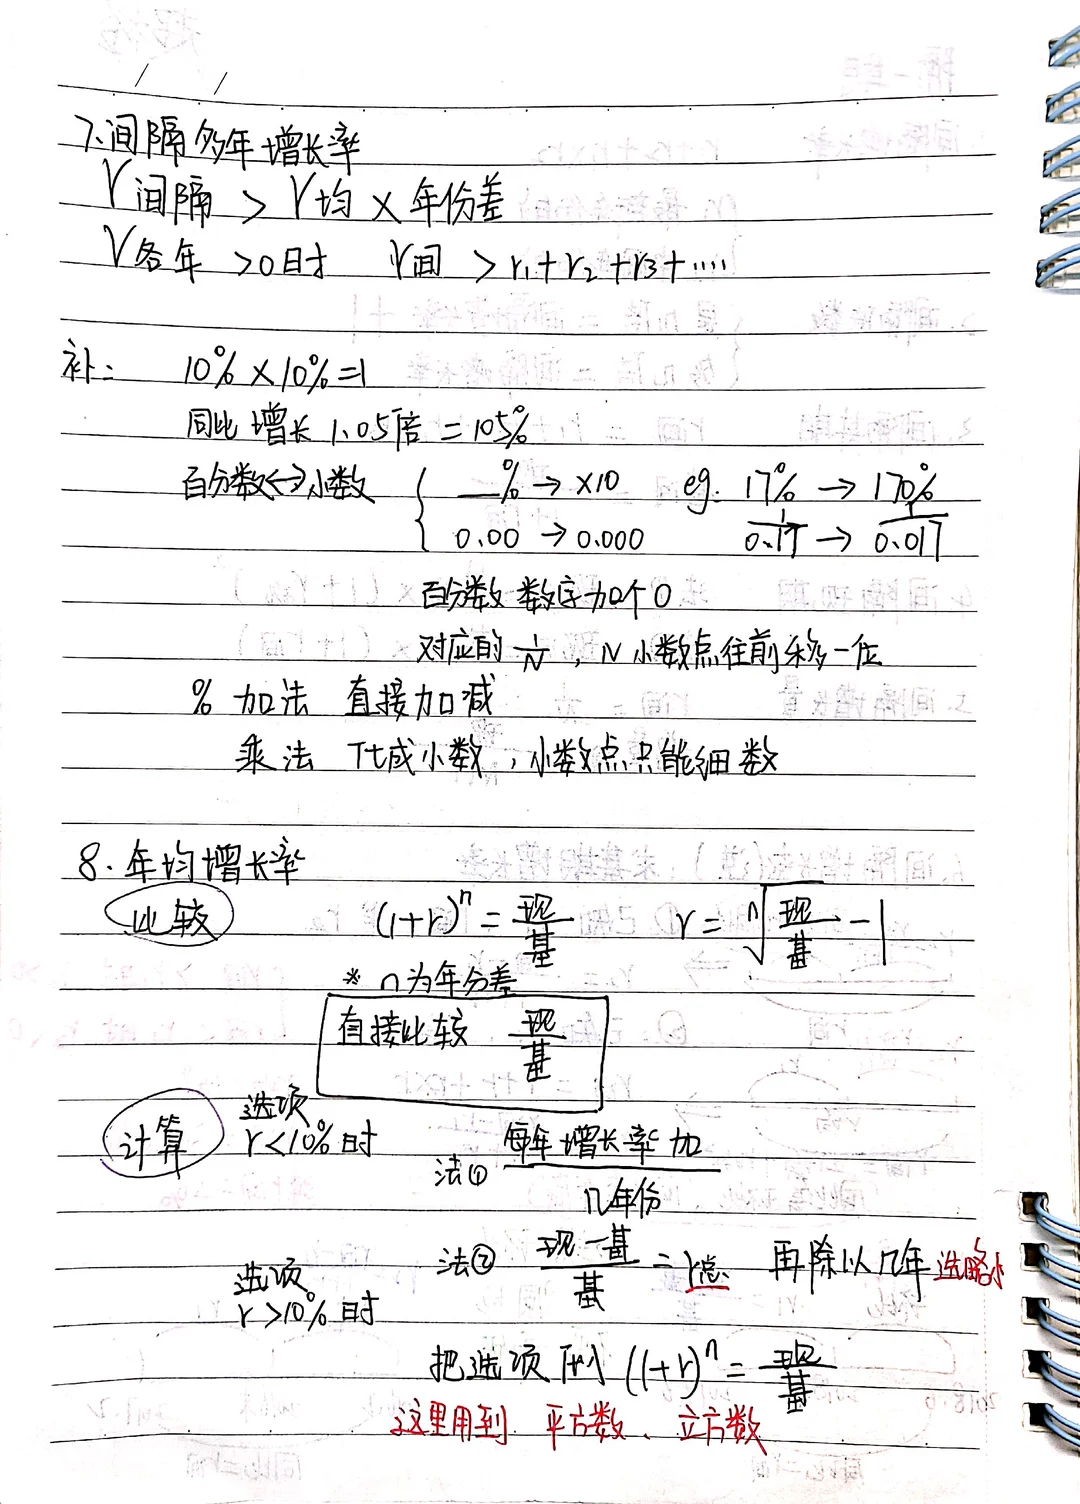 7、间隔多年增长率
r间隔 > r均 × 年份差
r各年 >0时 r间 > r₁+r₂+r₃+....
补： 10%×10%=1
同比增长1.05倍 = 105%
百分数<->小数 { __% → ×10 eg. 17% → 170%
0.00 → 0.000 0.17 → 0.017
百分数 数字加个0
对应的 1/N , N 小数点往前移一位
% 加法 直接加减
乘法 化成小数，小数点只能细数
8. 年均增长率
比较 (1+r)ⁿ = 现/基 r = ⁿ√(现/基) -1
* n为年分差
直接比较 现/基
计算 选项 r<10%时
法① 每年增长率加/几年份
法② (现-基)/基 = r总 再除以几年 选略小
选项 r>10%时
把选项 (1+r)ⁿ = 现/基
这里用到 平方数、立方数